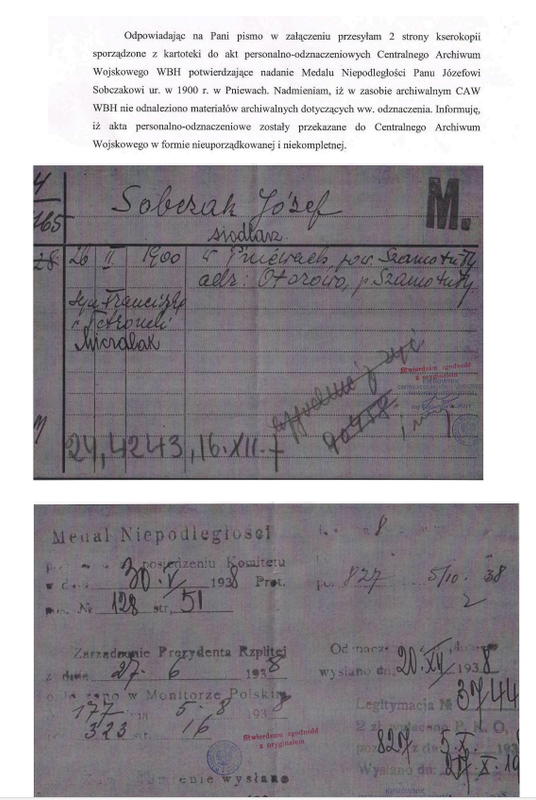 Odpowiadając na Pani pismo w załączeniu przesyłam 2 strony kserokopii
sporządzone z kartoteki do akt personalno-odznaczeniowych Centralnego Archiwum
Wojskowego WBH potwierdzające nadanie Medalu Niepodległości Panu Józefowi
Sobczakowi ur. w 1900 r. w Pniewach. Nadmieniam, iż w zasobie archiwalnym CAW
WBH nie odnaleziono materiałów archiwalnych dotyczących ww. odznaczenia. Informuję,
iż akta personalno-odznaczeniowe zostały przekazane do Centralnego Archiwum
Wojskowego w formie nieuporządkowanej i niekompletnej.
Sobczak Józef
M.
165
siodlarz
28. 26 II 1900 w Pniewach, pow. Szamotuły
adr: Otorowo, p. Szamotuły
syn Franciszka
i Petroneli
Stwierdzam zgodność
z oryginałem
24,4243, 16.XII.
Medal Niepodległości
posiedzeniu Komitetu
8
30.V 1938 Prot.
827 5/10 38
Nr 128 str. 51
2
Zarządzenie Prezydenta Rzplitej
z dnia 27. 6 1938
wysłano dn. 20.XII 1938
w Monitorze Polskim
177 5. 8 193
Legitymacja № 3744
323 str. 16
2 zł P. K. O,
Stwierdzam zgodność
z oryginałem
827 z dn. 5.X. 193
Wysłano dn.
wysłano